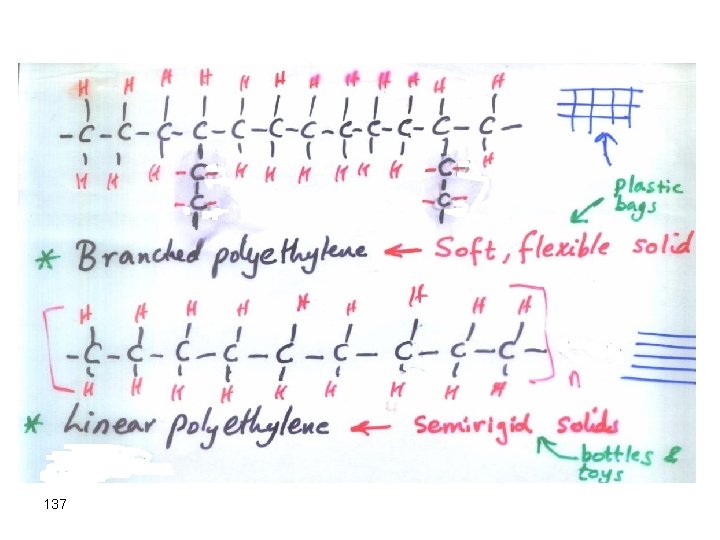 H H H H H H H H H H H H
-C-C-C-C-C-C-C-C-C-C-C-C-
H H H -C- H H H H H H -C- H
-C- -C-
plastic
bags
* Branched polyethylene ← Soft, flexible solid
H H H H H H H H H
-C-C-C-C-C-C-C-C-C-
H H H H H H H H H n
* Linear polyethylene ← semirigid solids
bottles &
toys
137